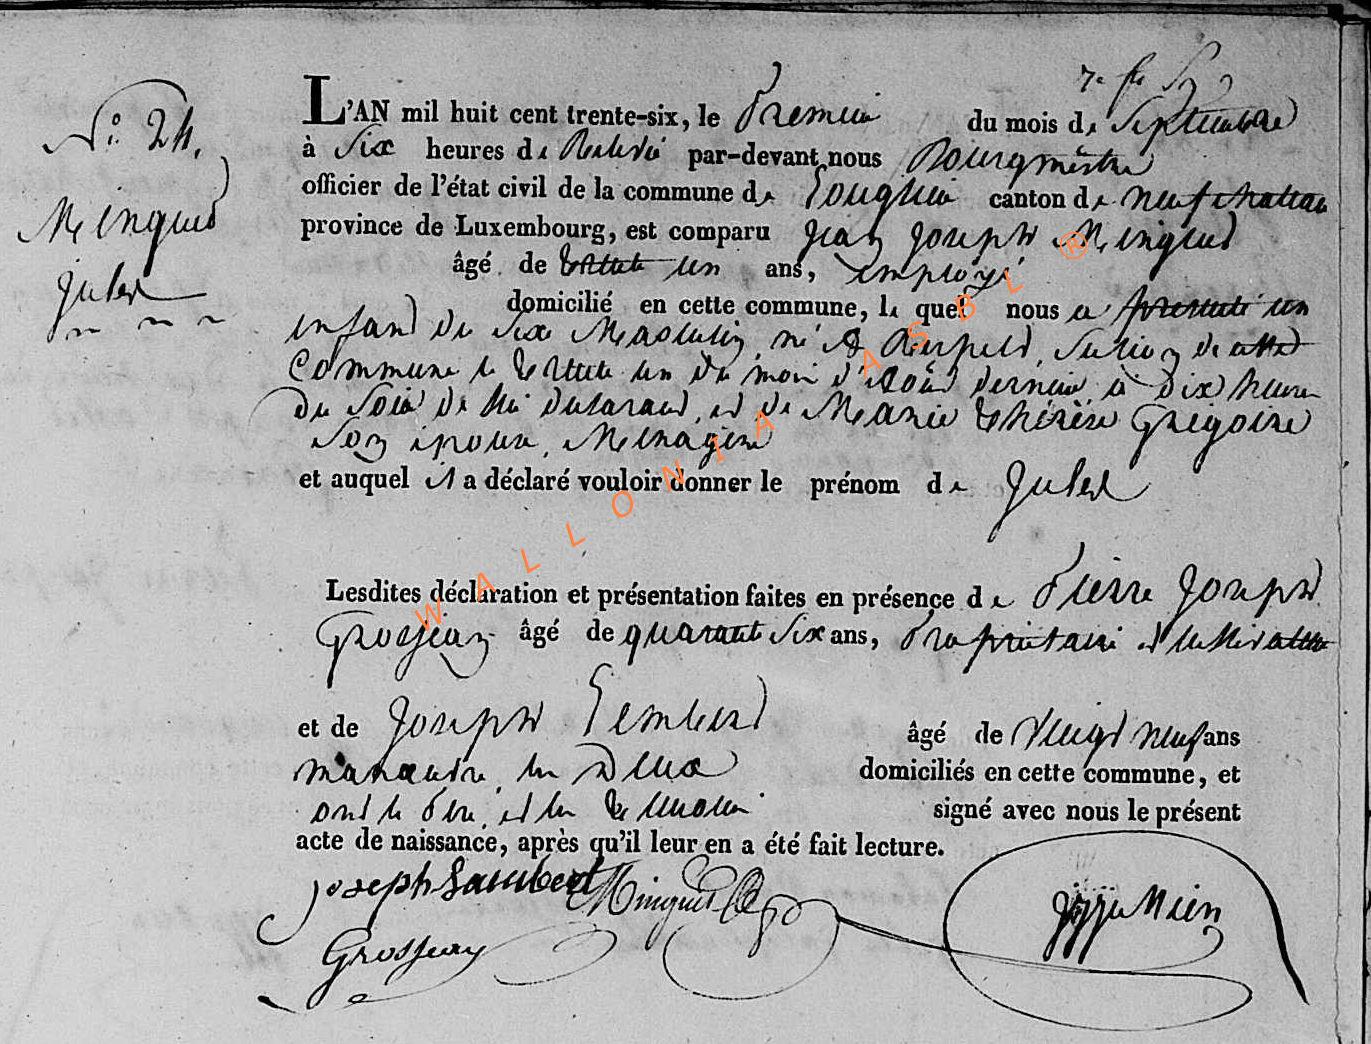 N.° 24.
Minguet
Jules
L'AN mil huit cent trente-six, le Premier du mois de Septembre
à Six heures de Relevé par-devant nous Bourgmestre
officier de l'état civil de la commune de Longlier canton de neufchateau
province de Luxembourg, est comparu Jean Joseph Minguet
âgé de trente un ans, employé
domicilié en cette commune, lequel nous a presenté un
enfant de Sexe Masculin, né à Respelt, Section de cette
Commune le trente un du mois d'août dernier à dix heures
du Soir de lui declarant, et de Marie thérèse Grégoire
Son épouse, Menagère
et auquel il a déclaré vouloir donner le prénom de Jules
Lesdites déclaration et présentation faites en présence de Pierre Joseph
Grosjean âgé de quarante Six ans, Propriétaire et
et de Joseph Lambert âgé de Vingt neuf ans
les Deux domiciliés en cette commune, et
ont le Père, et les temoins signé avec nous le présent
acte de naissance, après qu'il leur en a été fait lecture.
Joseph Lambert Minguet
Grosjean
WALLONIA ASBL ®